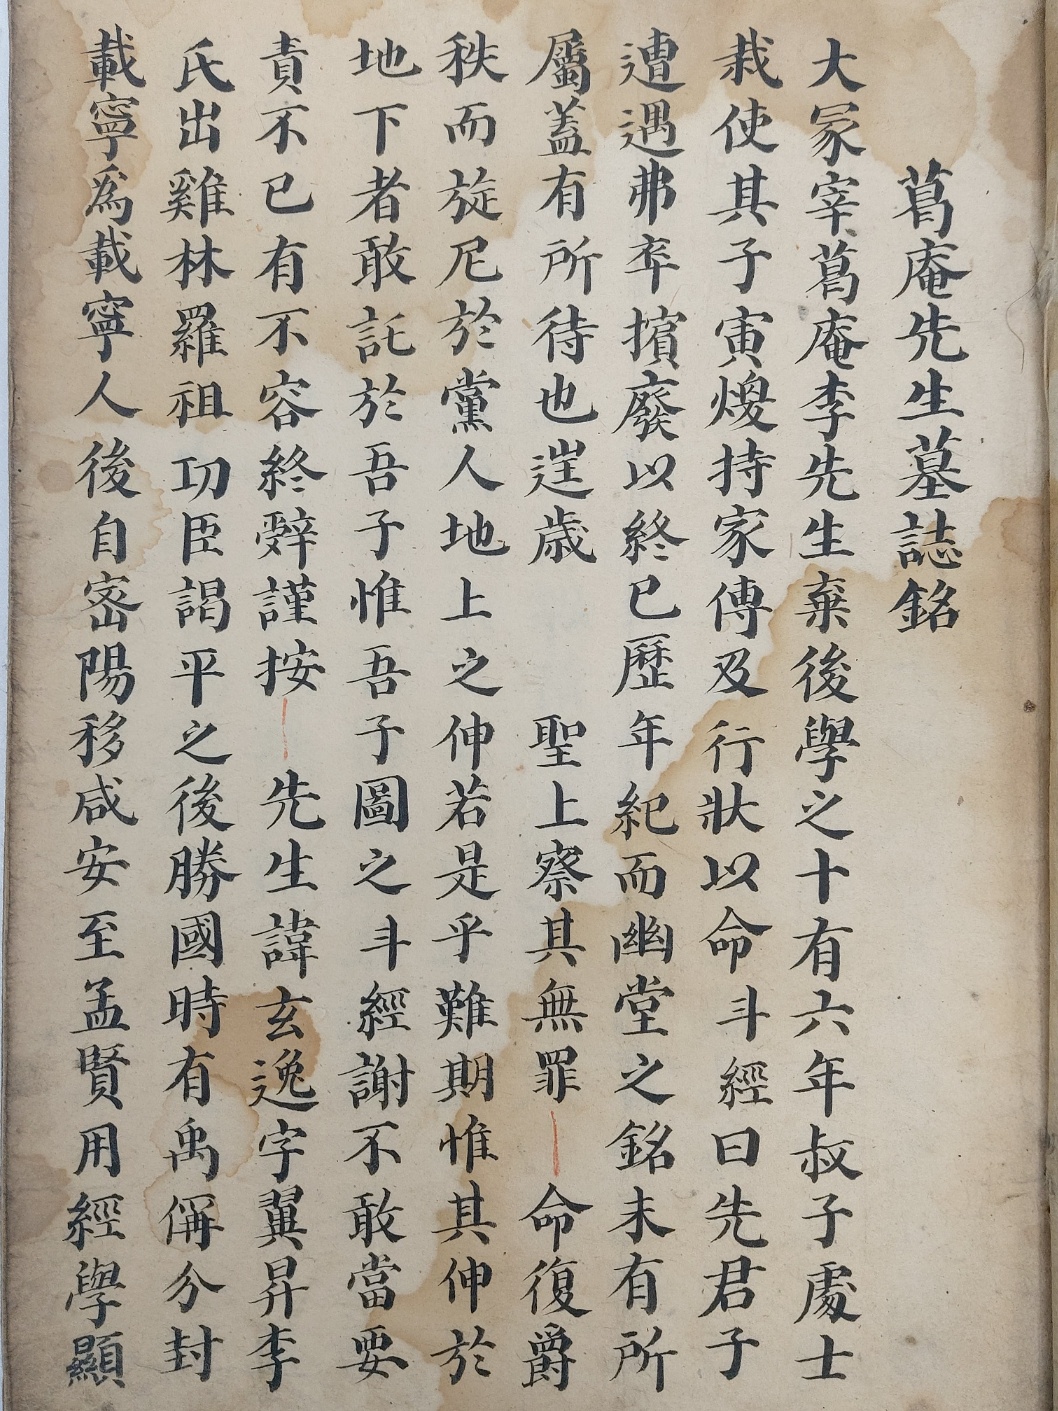 葛庵先生墓誌銘
大冢宰葛庵李先生棄後學之十有六年叔子處士
栽使其子寅熳持家傳及行狀以命斗經曰先君子
遭遇弗卒擯廢以終已歷年紀而幽堂之銘未有所
屬蓋有所待也逞歲 聖上察其無罪 命復爵
秩而旋尼於黨人地上之伸若是乎難期惟其伸於
地下者敢託於吾子惟吾子圖之斗經謝不敢當要
責不已有不容終辭謹按 先生諱玄逸字翼昇李
氏出雞林羅祖功臣謁平之後勝國時有禹偁分封
載寧爲載寧人後自密陽移咸安至孟賢用經學顯